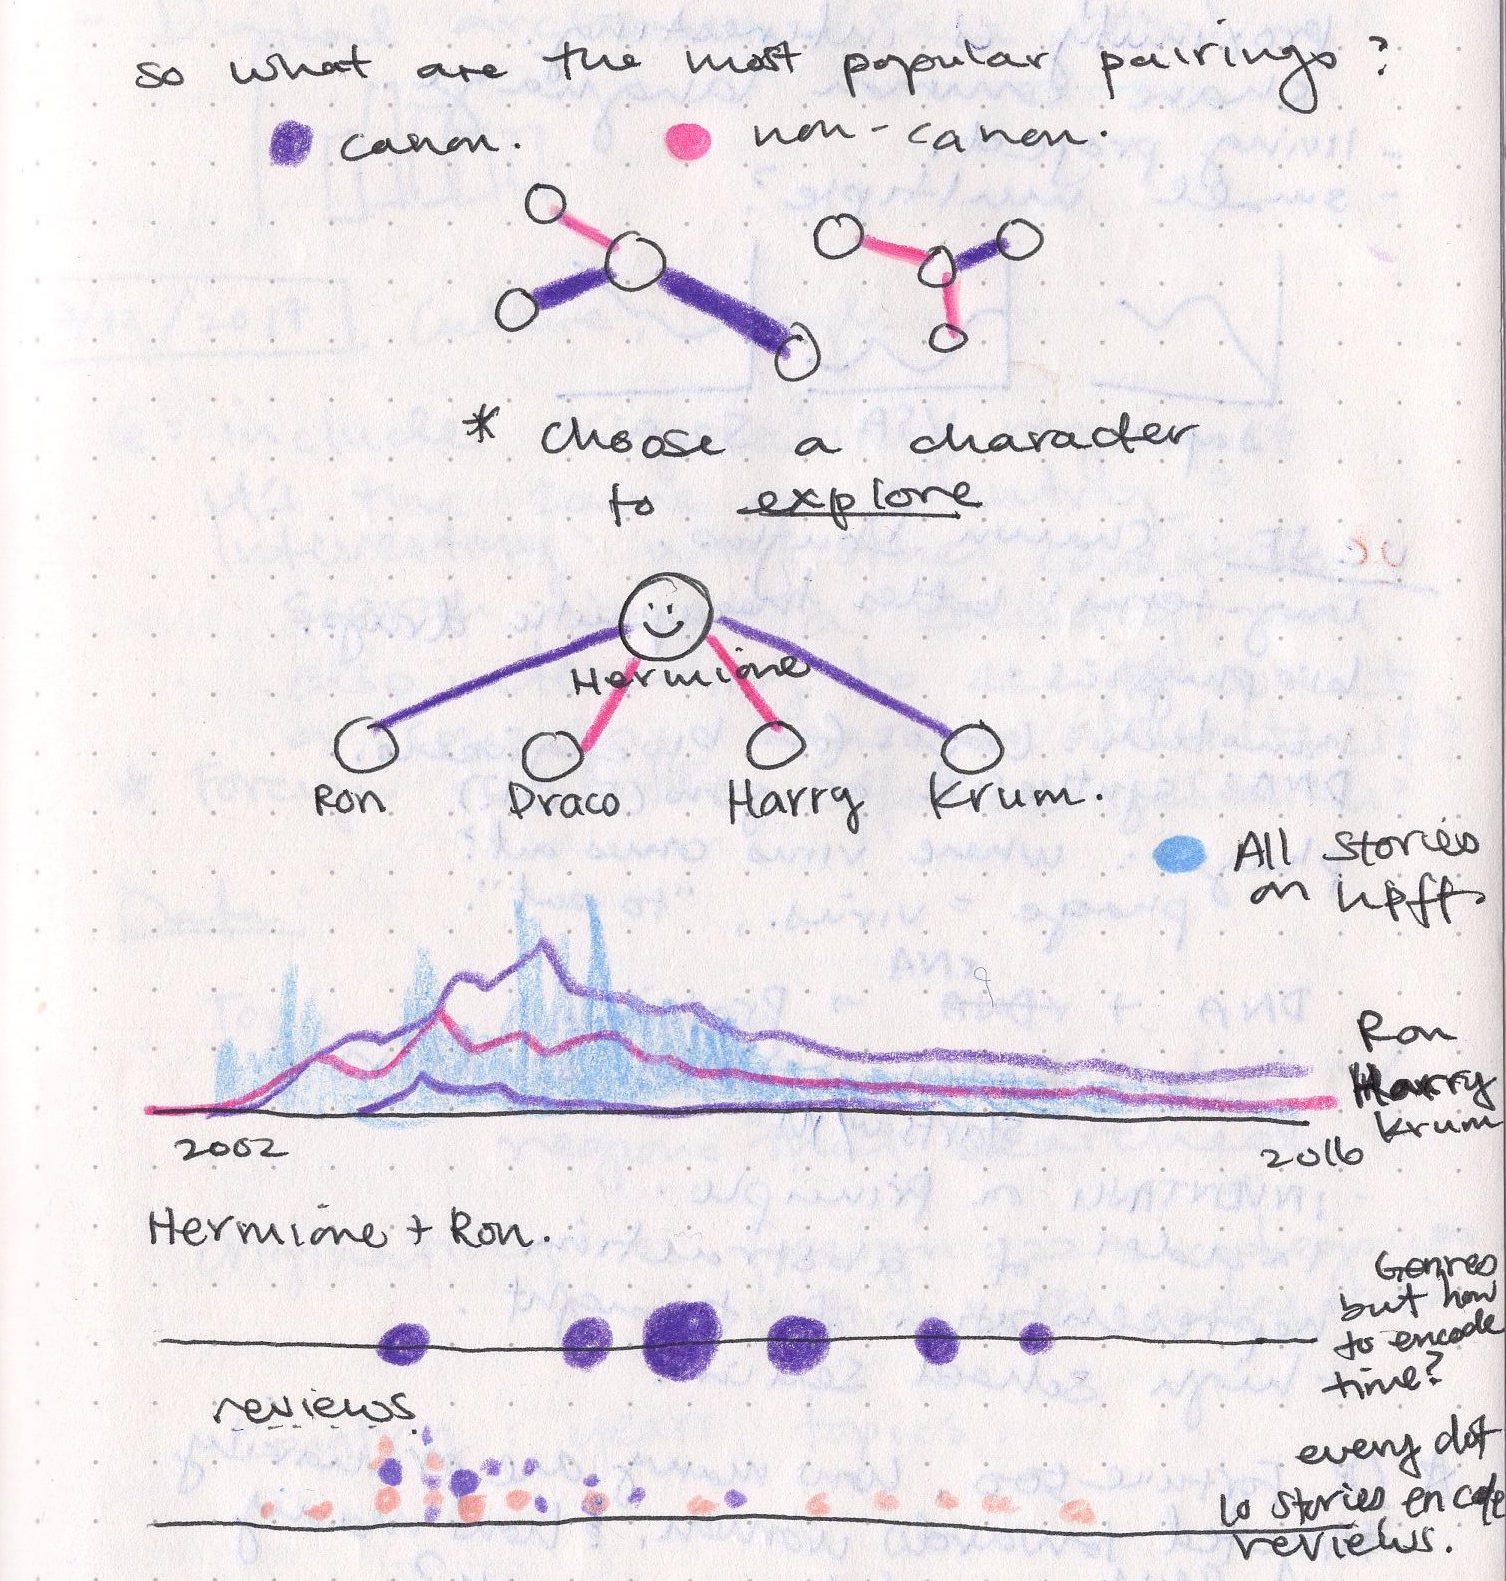 so what are the most popular pairings?
canon.
non-canon.
* choose a character
to explore
Hermione
Ron
Draco
Harry
Krum.
All stories
on hpff.
Ron
Harry
Krum
2002
2016
Hermione + Ron.
Genres
but how
to encode
time?
reviews.
every dot
10 stories encode
reviews.